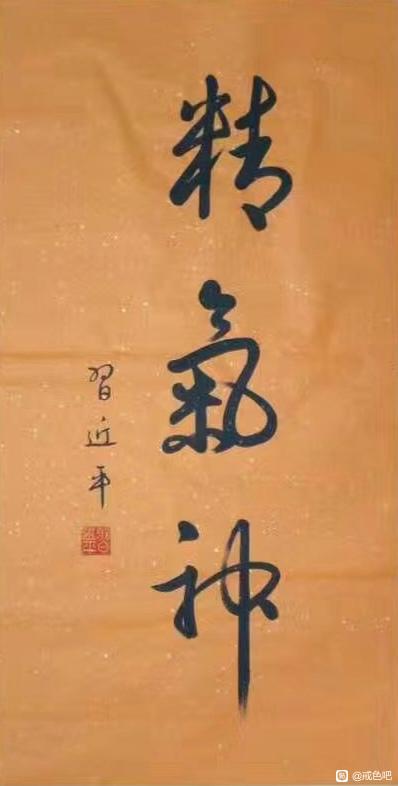 精氣神
習近平
@戒色吧